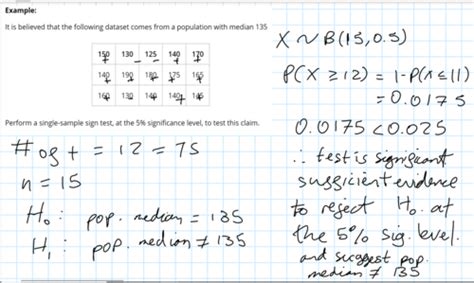 Example:
It is believed that the following dataset comes from a population with median 135
150 130 125 140 170
140 190 180 175 165
160 130 140 140 145
Perform a single-sample sign test, at the 5% significance level, to test this claim.
# of + = 12 = TS
n = 15
H₀: pop. median = 135
H₁: pop. median ≠ 135
X ~ B(15, 0.5)
P(X ≥ 12) = 1-P(X ≤ 11)
= 0.0175
0.0175 < 0.025
∴ test is significant
sufficient evidence
to reject H₀ at
the 5% sig. level.
and suggest pop.
median ≠ 135